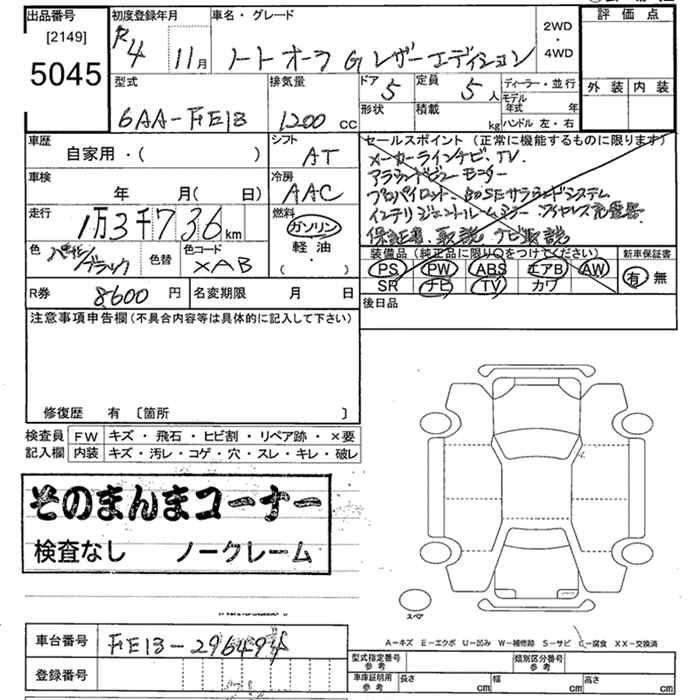 出品番号
[2149]
5045
初度登録年月
R4 11月
車名・グレード
ノート オーラ G レザーエディション
2WD
・
4WD
評価点
外装 内装
型式
6AA-FE13
排気量
1200 CC
ドア 5
定員 5人
ディーラー・並行
モデル年式 年
形状
積載 kg
ハンドル 左・右
車歴
自家用・( )
シフト
AT
車検
年 月( 日)
冷房
AAC
走行
1万3千736km
燃料
ガソリン
軽油
( ・ )
色
ブラック
色替
色コード
XAB
R券 8600円
名変期限 月 日
セールスポイント(正常に機能するものに限ります)
メーカーラインナビ.TV.
アラウンドビューモニター
プロパイロット.BOSEサラウンドシステム
インテリジェントルームミラー ワイヤレス充電器
保証書.取説 ナビ取説
装備品(純正品に限り○をつけてください)
新車保証書
PS PW ABS エアB AW
SR ナビ TV カワ
有・無
後日品
注意事項申告欄(不具合内容等は具体的に記入して下さい)
修復歴 有 〔箇所 〕
検査員記入欄
FW キズ・飛石・ヒビ割・リペア跡・×要
内装 キズ・汚レ・コゲ・穴・スレ・キレ・破レ
そのまんまコーナー
検査なし ノークレーム
スペア
A-キズ E-エクボ U-凹み W-補修跡 S-サビ C-腐食 XX-交換済
車台番号 FE13-296494
登録番号
型式指定番号 参考
類別区分番号 参考
車庫証明用 参考
長さ cm
幅 cm
高さ cm